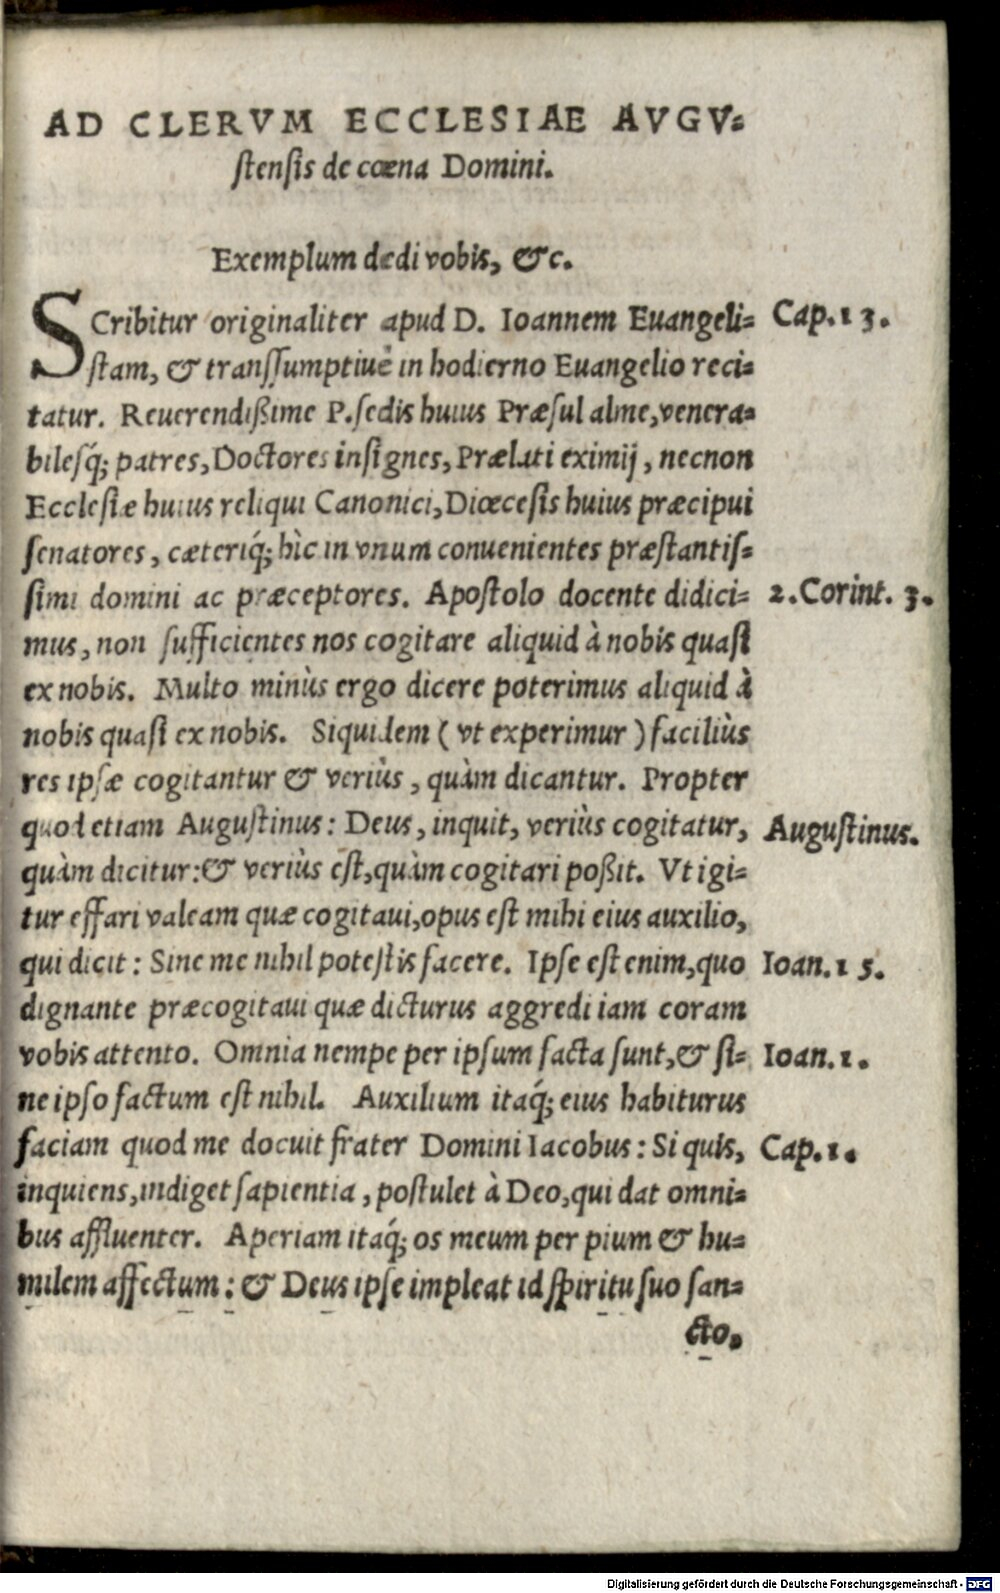 AD CLERVM ECCLESIAE AVGV-
stensis de cœna Domini.
Exemplum dedi vobis, &c.
SCribitur originaliter apud D. Ioannem Euangeli- Cap. 13.
stam, & transsumptiuè in hodierno Euangelio reci-
tatur. Reuerendißime P. sedis huius Præsul alme, venera-
bilesq́; patres, Doctores insignes, Prælati eximij, necnon
Ecclesiæ huius reliqui Canonici, Diœcesis huius præcipui
senatores, cæteriq́; hìc in vnum conuenientes præstantis-
simi domini ac præceptores. Apostolo docente didici- 2. Corint. 3.
mus, non sufficientes nos cogitare aliquid à nobis quasi
ex nobis. Multo minùs ergo dicere poterimus aliquid à
nobis quasi ex nobis. Siquidem ( vt experimur ) faciliùs
res ipsæ cogitantur & veriùs, quàm dicantur. Propter
quod etiam Augustinus: Deus, inquit, veriùs cogitatur, Augustinus.
quàm dicitur: & veriùs est, quàm cogitari poßit. Vt igi-
tur effari valeam quæ cogitaui, opus est mihi eius auxilio,
qui dicit: Sine me nihil potestis facere. Ipse est enim, quo Ioan. 15.
dignante præcogitaui quæ dicturus aggredi iam coram
vobis attento. Omnia nempe per ipsum facta sunt, & si- Ioan. 1.
ne ipso factum est nihil. Auxilium itaq́; eius habiturus
faciam quod me docuit frater Domini Iacobus: Si quis, Cap. 1.
inquiens, indiget sapientia, postulet à Deo, qui dat omni-
bus affluenter. Aperiam itaq́; os meum per pium & hu-
milem affectum: & Deus ipse impleat id spiritu suo san-
cto.
Digitalisierung gefördert durch die Deutsche Forschungsgemeinschaft - DFG